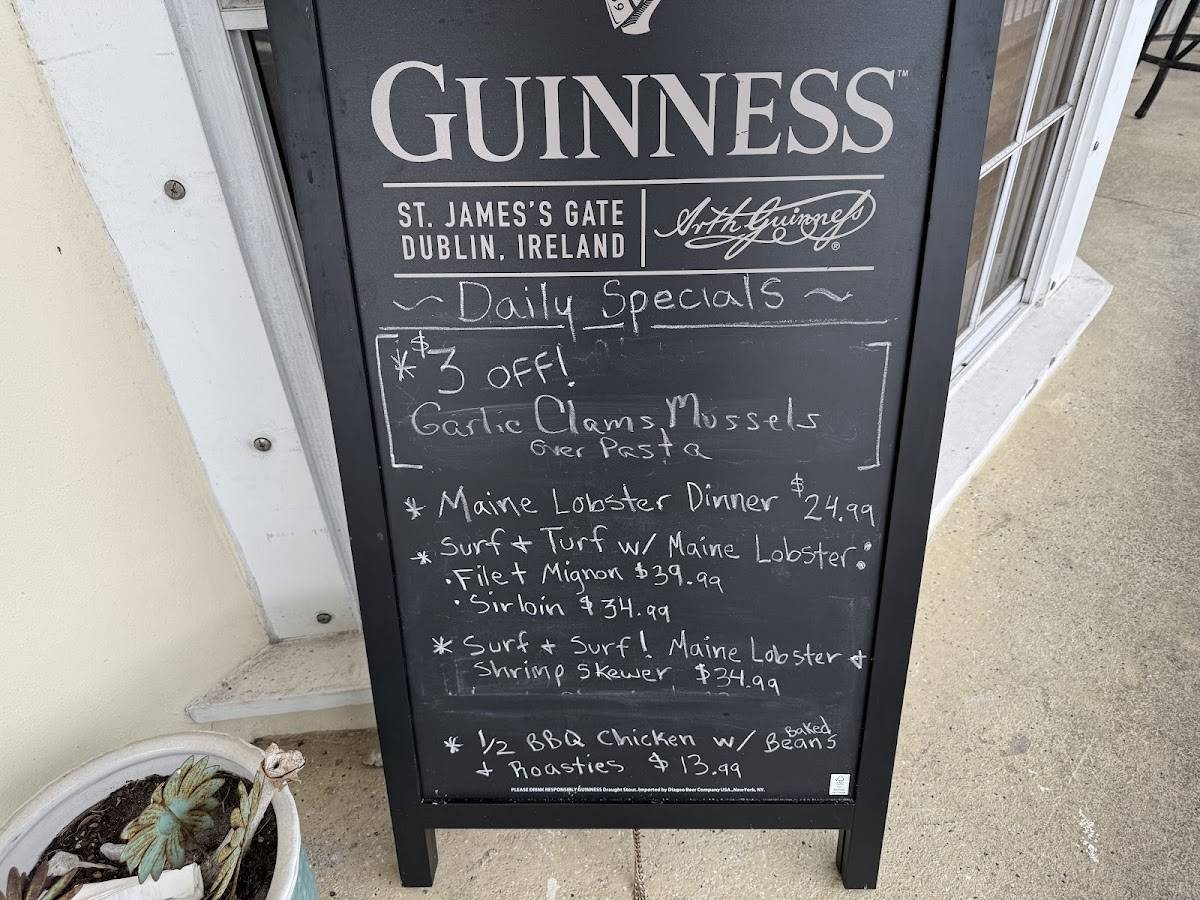 GUINNESS™
ST. JAMES'S GATE
DUBLIN, IRELAND
Arth Guinness®
~ Daily Specials ~
* $3 OFF!
Garlic Clams, Mussels
over Pasta
* Maine Lobster Dinner $24.99
* Surf + Turf w/ Maine Lobster:
• Filet Mignon $39.99
• Sirloin $34.99
* Surf + Surf! Maine Lobster +
Shrimp Skewer $34.99
* 1/2 BBQ Chicken w/ Baked Beans
+ Roasties $13.99
PLEASE DRINK RESPONSIBLY GUINNESS Draught Stout. Imported by Diageo Beer Company USA, New York, NY.